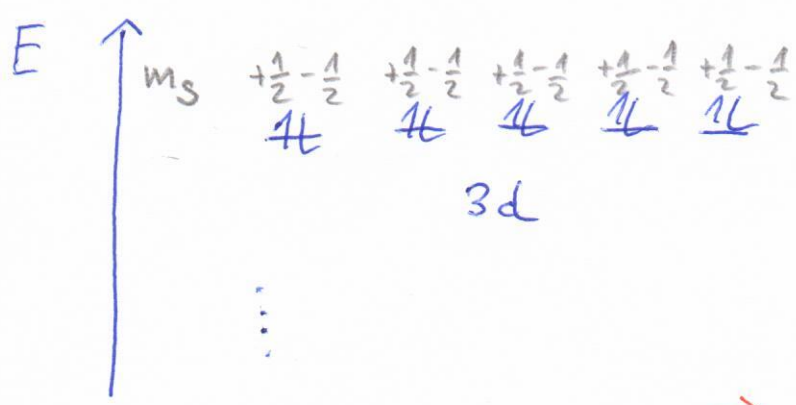 E
m_s +1/2 -1/2 +1/2 -1/2 +1/2 -1/2 +1/2 -1/2 +1/2 -1/2
⥮ ⥮ ⥮ ⥮ ⥮
3d
⋮